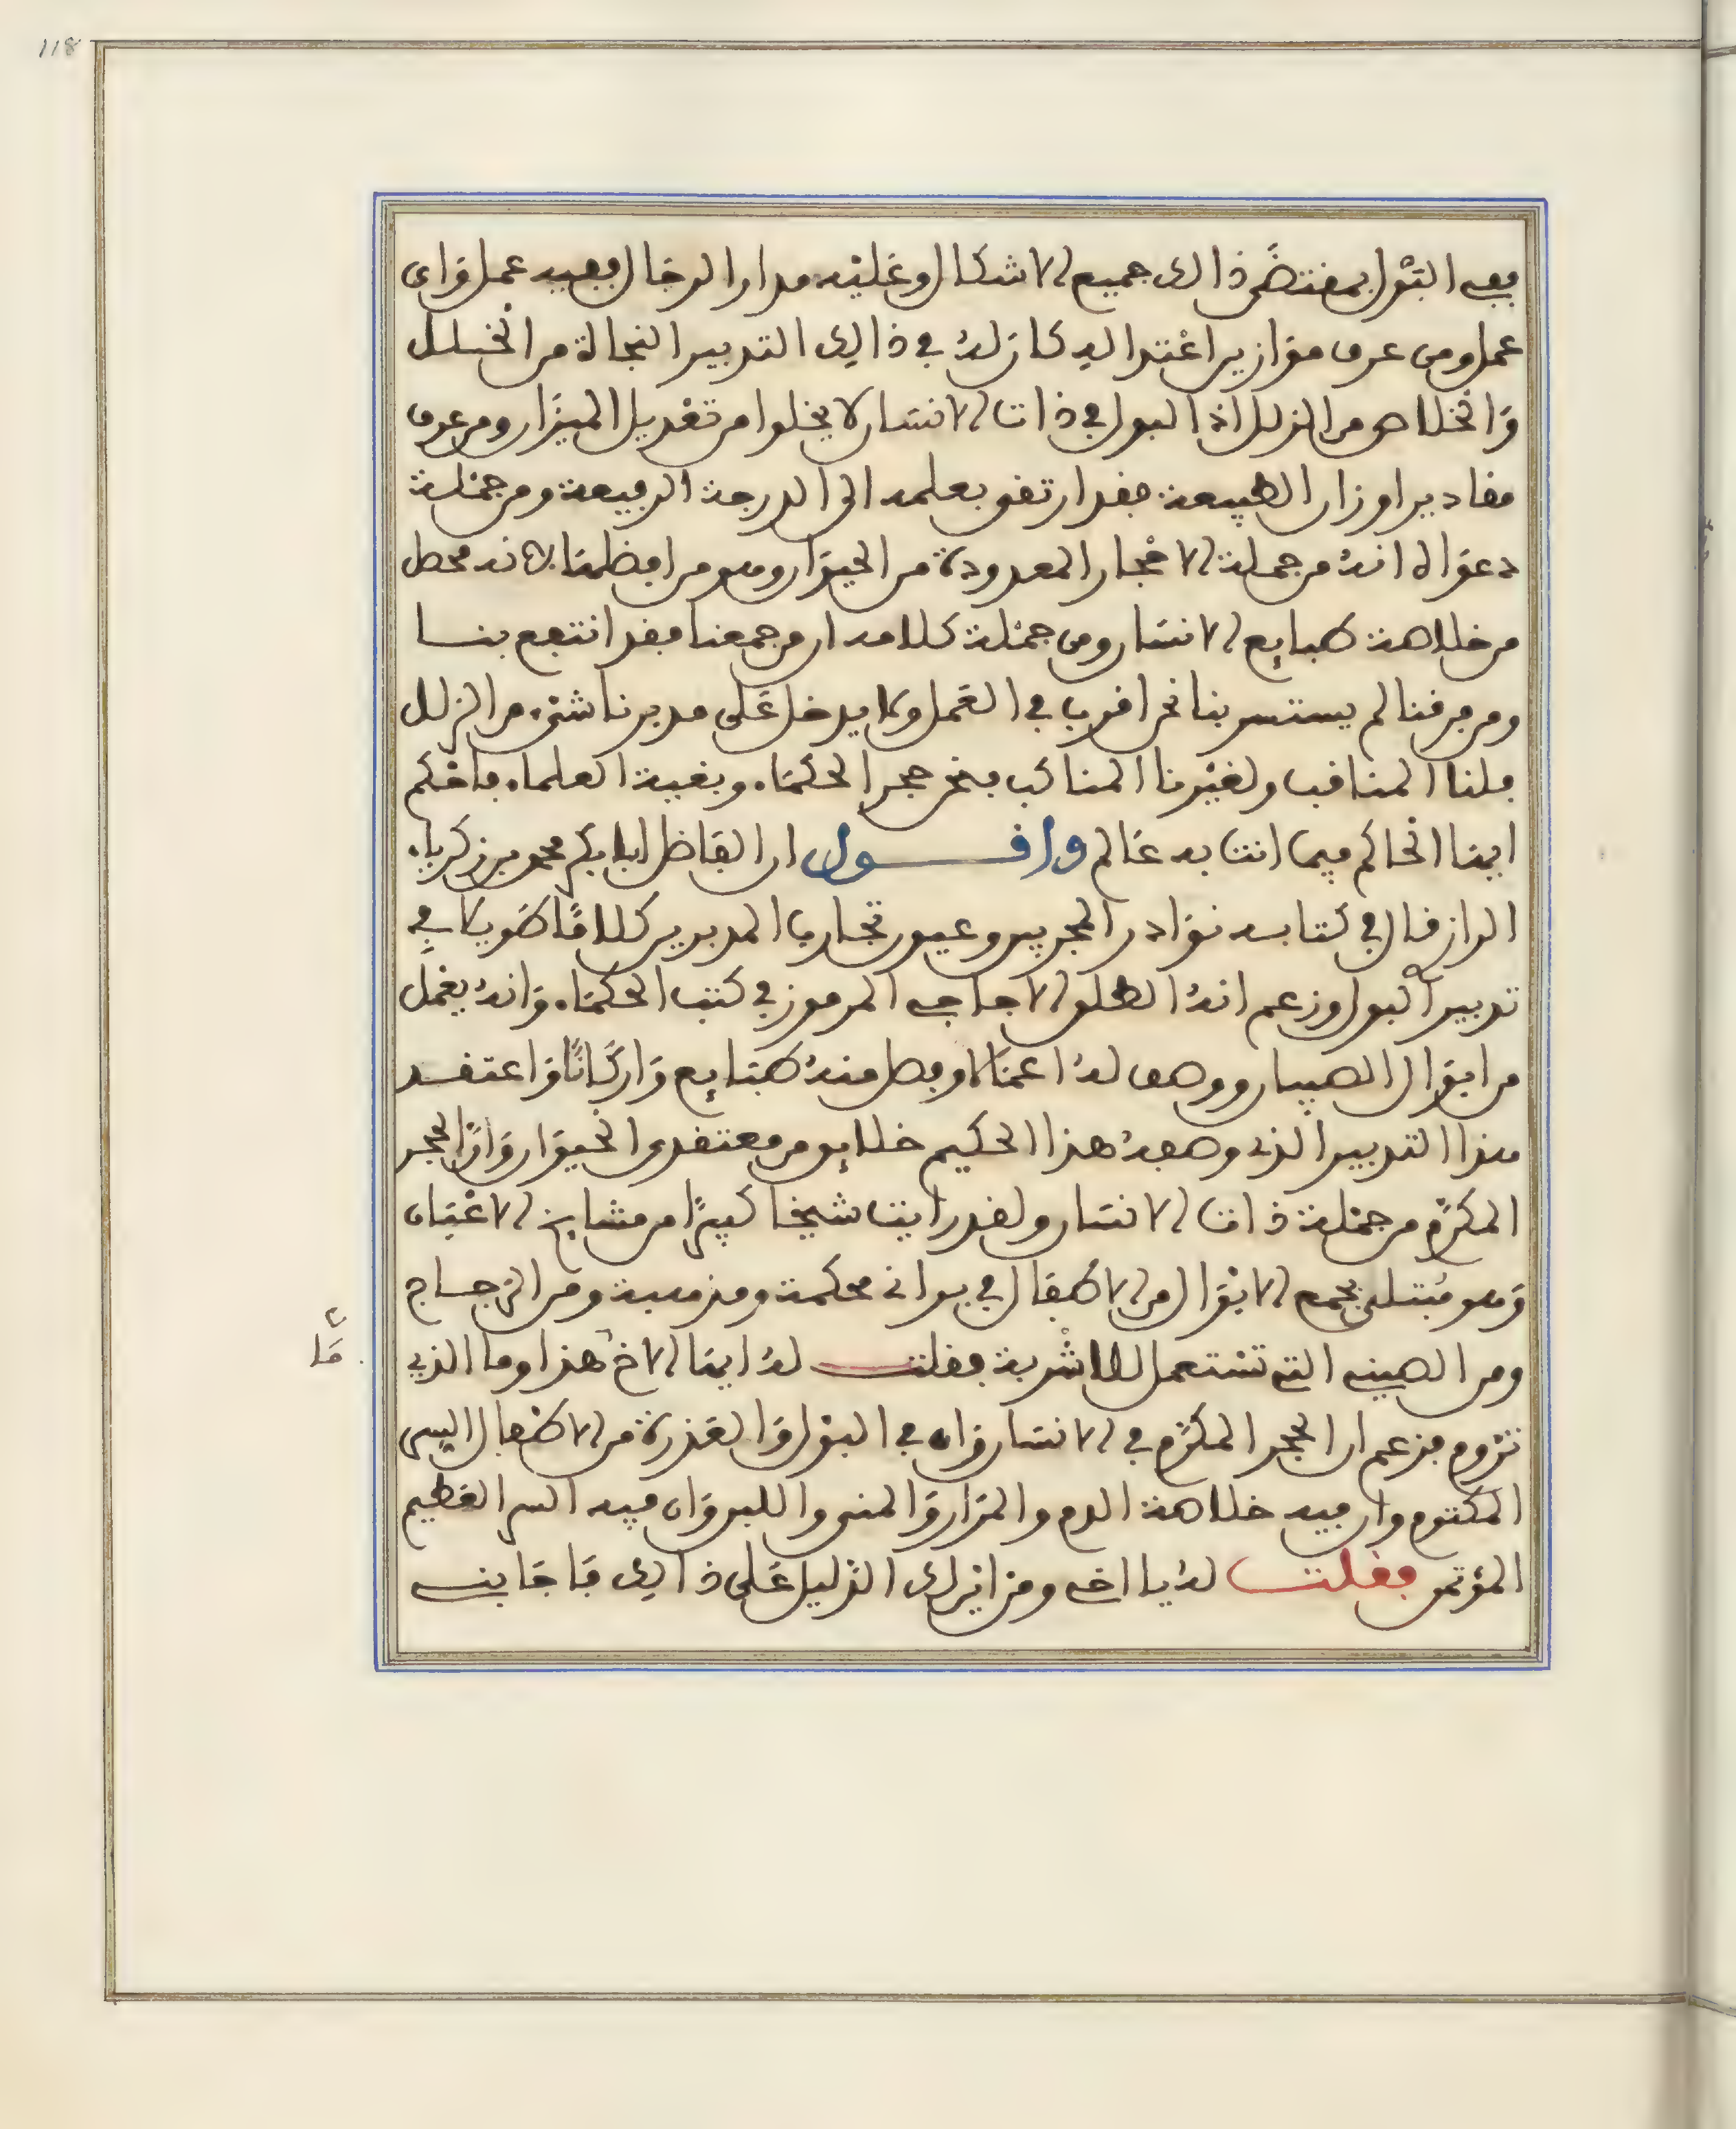 118
ففي البول بمقتضى ذالك جميع الاشكال وعليه مدار الرجال ففيه عمل واي
عمل ومن عرف موازين اعتداله كان له في ذالك التدبير النجاة من الخلل
والخلاص من الزلل اذ البول في ذات الانسان لا يخلوا من تعديل الميزان ومن عرف
مقادير اوزان الطبيعة فقد ارتقى بعلمه الى الدرجة الرفيعة ومن جملة
دعواه انه من جملة الاحجار المعدودة من الحيوان وهو من افضلها لانه محصل
من خلاصة طبايع الانسان ومن جملة كلامه ان من جمعنا فقد انتفع بنا
ومن فرقنا لم يستسر بنا نحن اقرب في العمل ولا يدخل على مدبرنا شيء من الزلل
فلنا المناقب ولغيرنا المتاعب فنحن حجر الحكماء وبغية العلماء فاحكم
ايها الحاكم فيما انت به عالم واقـول ان الفاضل ابا بكر محمد بن زكرياء
الراز قال في كتابه نوادر المجربين وعيون تجارب المدبرين كلاما طويلا في
تدبير البول وزعم انه الخل الاجاجي المرموز في كتب الحكماء وانه يعمل
من ابوال الصبيان ووصف له اعمالا وفصل منه طبايع واركانا واعتقد
هذا التدبير الذي وصفه هذا الحكيم خلايق من معتقدي الحيوان وان الحجر
المكرم من جملة ذات الانسان ولقد رايت شيخا كبيرا من مشايخ الاعيان
وهو مبتلى بجمع الابوال من الاطفال في براني محكمة ومذهبة ومن الزجاج
ومن الصيني التي تستعمل للاشربة فقلت له ايها الاخ هذا وما الذي
ما
تروم فزعم ان الحجر المكرم في الانسان وان في البول والعذرة من الاطفال السر
المكتوم وان فيه خلاصة الدم والمرار والمني واللبن وان فيه السر العظيم
المؤتمن فقلت له يا اخي ومن اين لك الدليل على ذالك فاجابني